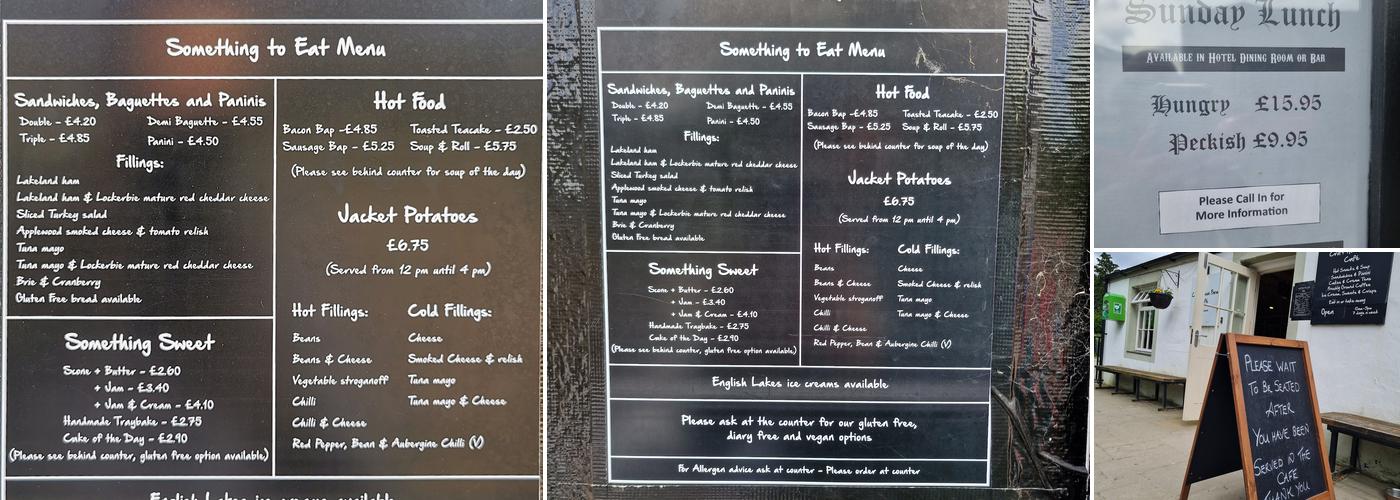 Something to Eat Menu
Sandwiches, Baguettes and Paninis
Double - £4.20 Demi Baguette - £4.55
Triple - £4.85 Panini - £4.50
Fillings:
Lakeland ham
Lakeland ham & Lockerbie mature red cheddar cheese
Sliced Turkey salad
Applewood smoked cheese & tomato relish
Tuna mayo
Tuna mayo & Lockerbie mature red cheddar cheese
Brie & Cranberry
Gluten Free bread available
Something Sweet
Scone + Butter - £2.60
+ Jam - £3.40
+ Jam & Cream - £4.10
Handmade Traybake - £2.75
Cake of the Day - £2.90
(Please see behind counter, gluten free option available)
Hot Food
Bacon Bap -£4.85 Toasted Teacake - £2.50
Sausage Bap - £5.25 Soup & Roll - £5.75
(Please see behind counter for soup of the day)
Jacket Potatoes
£6.75
(Served from 12 pm until 4 pm)
Hot Fillings: Cold Fillings:
Beans Cheese
Beans & Cheese Smoked Cheese & relish
Vegetable stroganoff Tuna mayo
Chilli Tuna mayo & Cheese
Chilli & Cheese
Red Pepper, Bean & Aubergine Chilli (V)
English Lakes ice creams available
Something to Eat Menu
Sandwiches, Baguettes and Paninis
Double - £4.20 Demi Baguette - £4.55
Triple - £4.85 Panini - £4.50
Fillings:
Lakeland ham
Lakeland ham & Lockerbie mature red cheddar cheese
Sliced Turkey salad
Applewood smoked cheese & tomato relish
Tuna mayo
Tuna mayo & Lockerbie mature red cheddar cheese
Brie & Cranberry
Gluten Free bread available
Something Sweet
Scone + Butter - £2.60
+ Jam - £3.40
+ Jam & Cream - £4.10
Handmade Traybake - £2.75
Cake of the Day - £2.90
(Please see behind counter, gluten free option available)
Hot Food
Bacon Bap -£4.85 Toasted Teacake - £2.50
Sausage Bap - £5.25 Soup & Roll - £5.75
(Please see behind counter for soup of the day)
Jacket Potatoes
£6.75
(Served from 12 pm until 4 pm)
Hot Fillings: Cold Fillings:
Beans Cheese
Beans & Cheese Smoked Cheese & relish
Vegetable stroganoff Tuna mayo
Chilli Tuna mayo & Cheese
Chilli & Cheese
Red Pepper, Bean & Aubergine Chilli (V)
English Lakes ice creams available
Please ask at the counter for our gluten free,
diary free and vegan options
For Allergen advice ask at counter - Please order at counter
Sunday Lunch
Available in Hotel Dining Room or Bar
Hungry £15.95
Peckish £9.95
Please Call In for
More Information
Café
Hot Snacks & Soup
Sandwiches & Paninis
Cakes & Cream Teas
Freshly Ground Coffee
Ice Cream, Sweets & Crisps
Open
7 days a week
PLEASE WAIT
TO BE SEATED
AFTER
YOU HAVE BEEN
SERVED IN THE
CAFE
THANK YOU